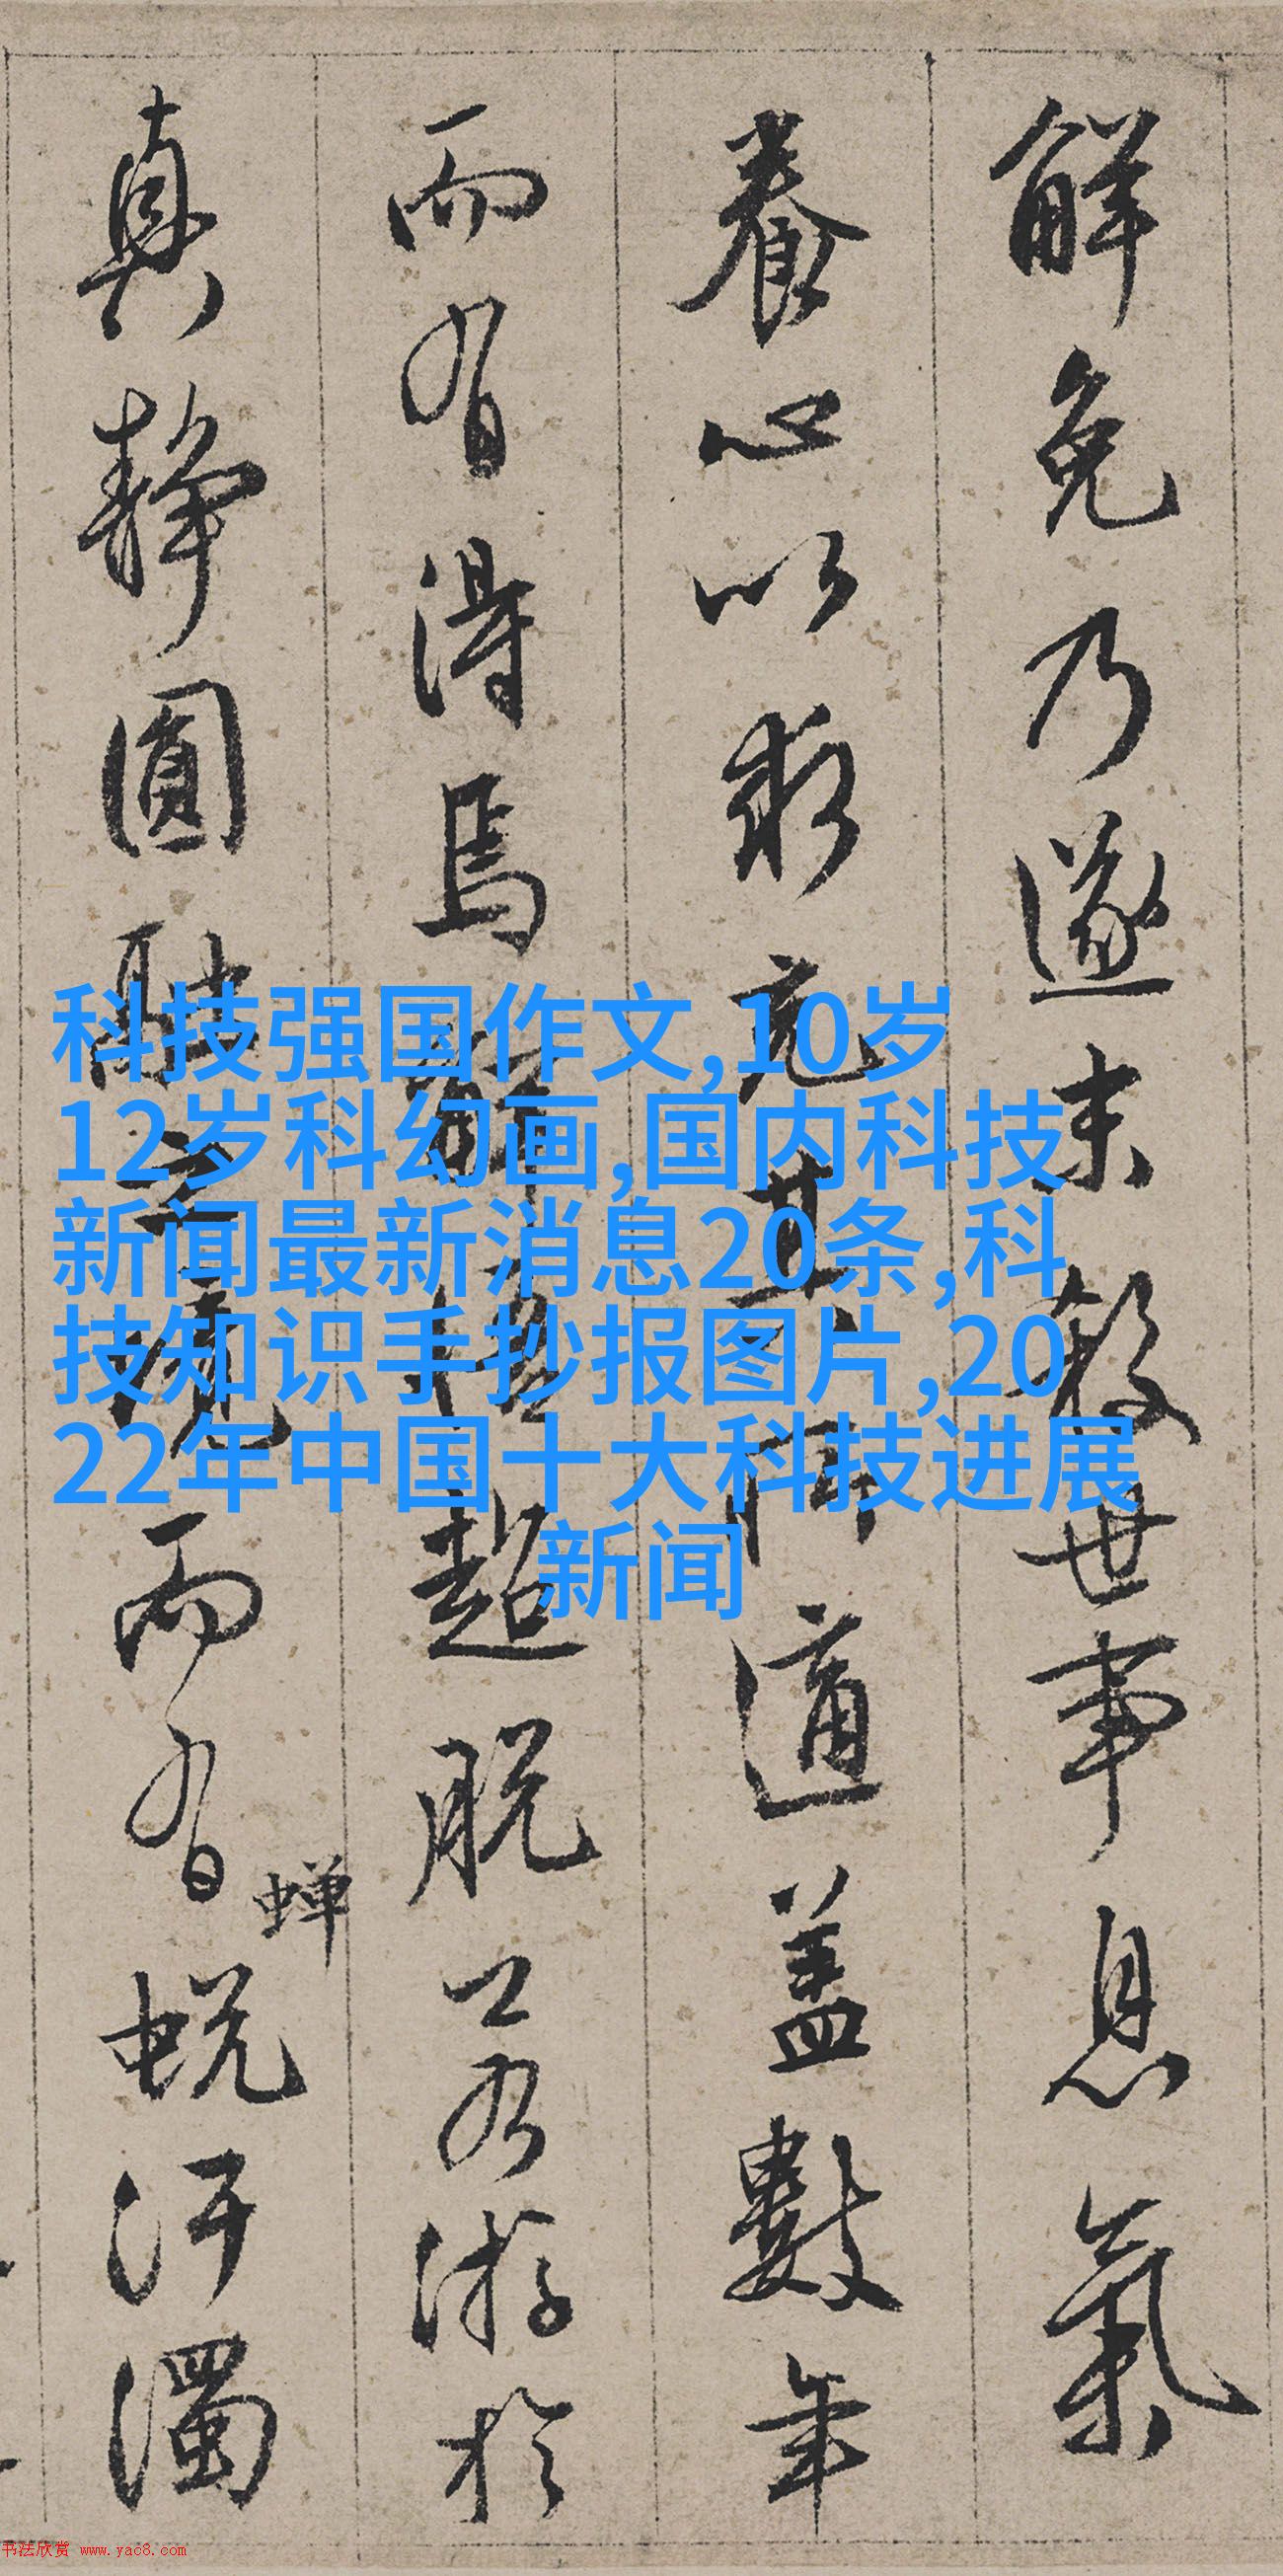 解免乃遂未散世事息氣
養心以求充其所適蓋數年
而有得焉解悟超脱上若游於
真静圓融之境而有
蟬
蜕汙濁
科技强国作文,10岁
12岁科幻画,国内科技
新闻最新消息20条,科
技知识手抄报图片,20
22年中国十大科技进展
新闻
书法欣赏 www.yac8.com